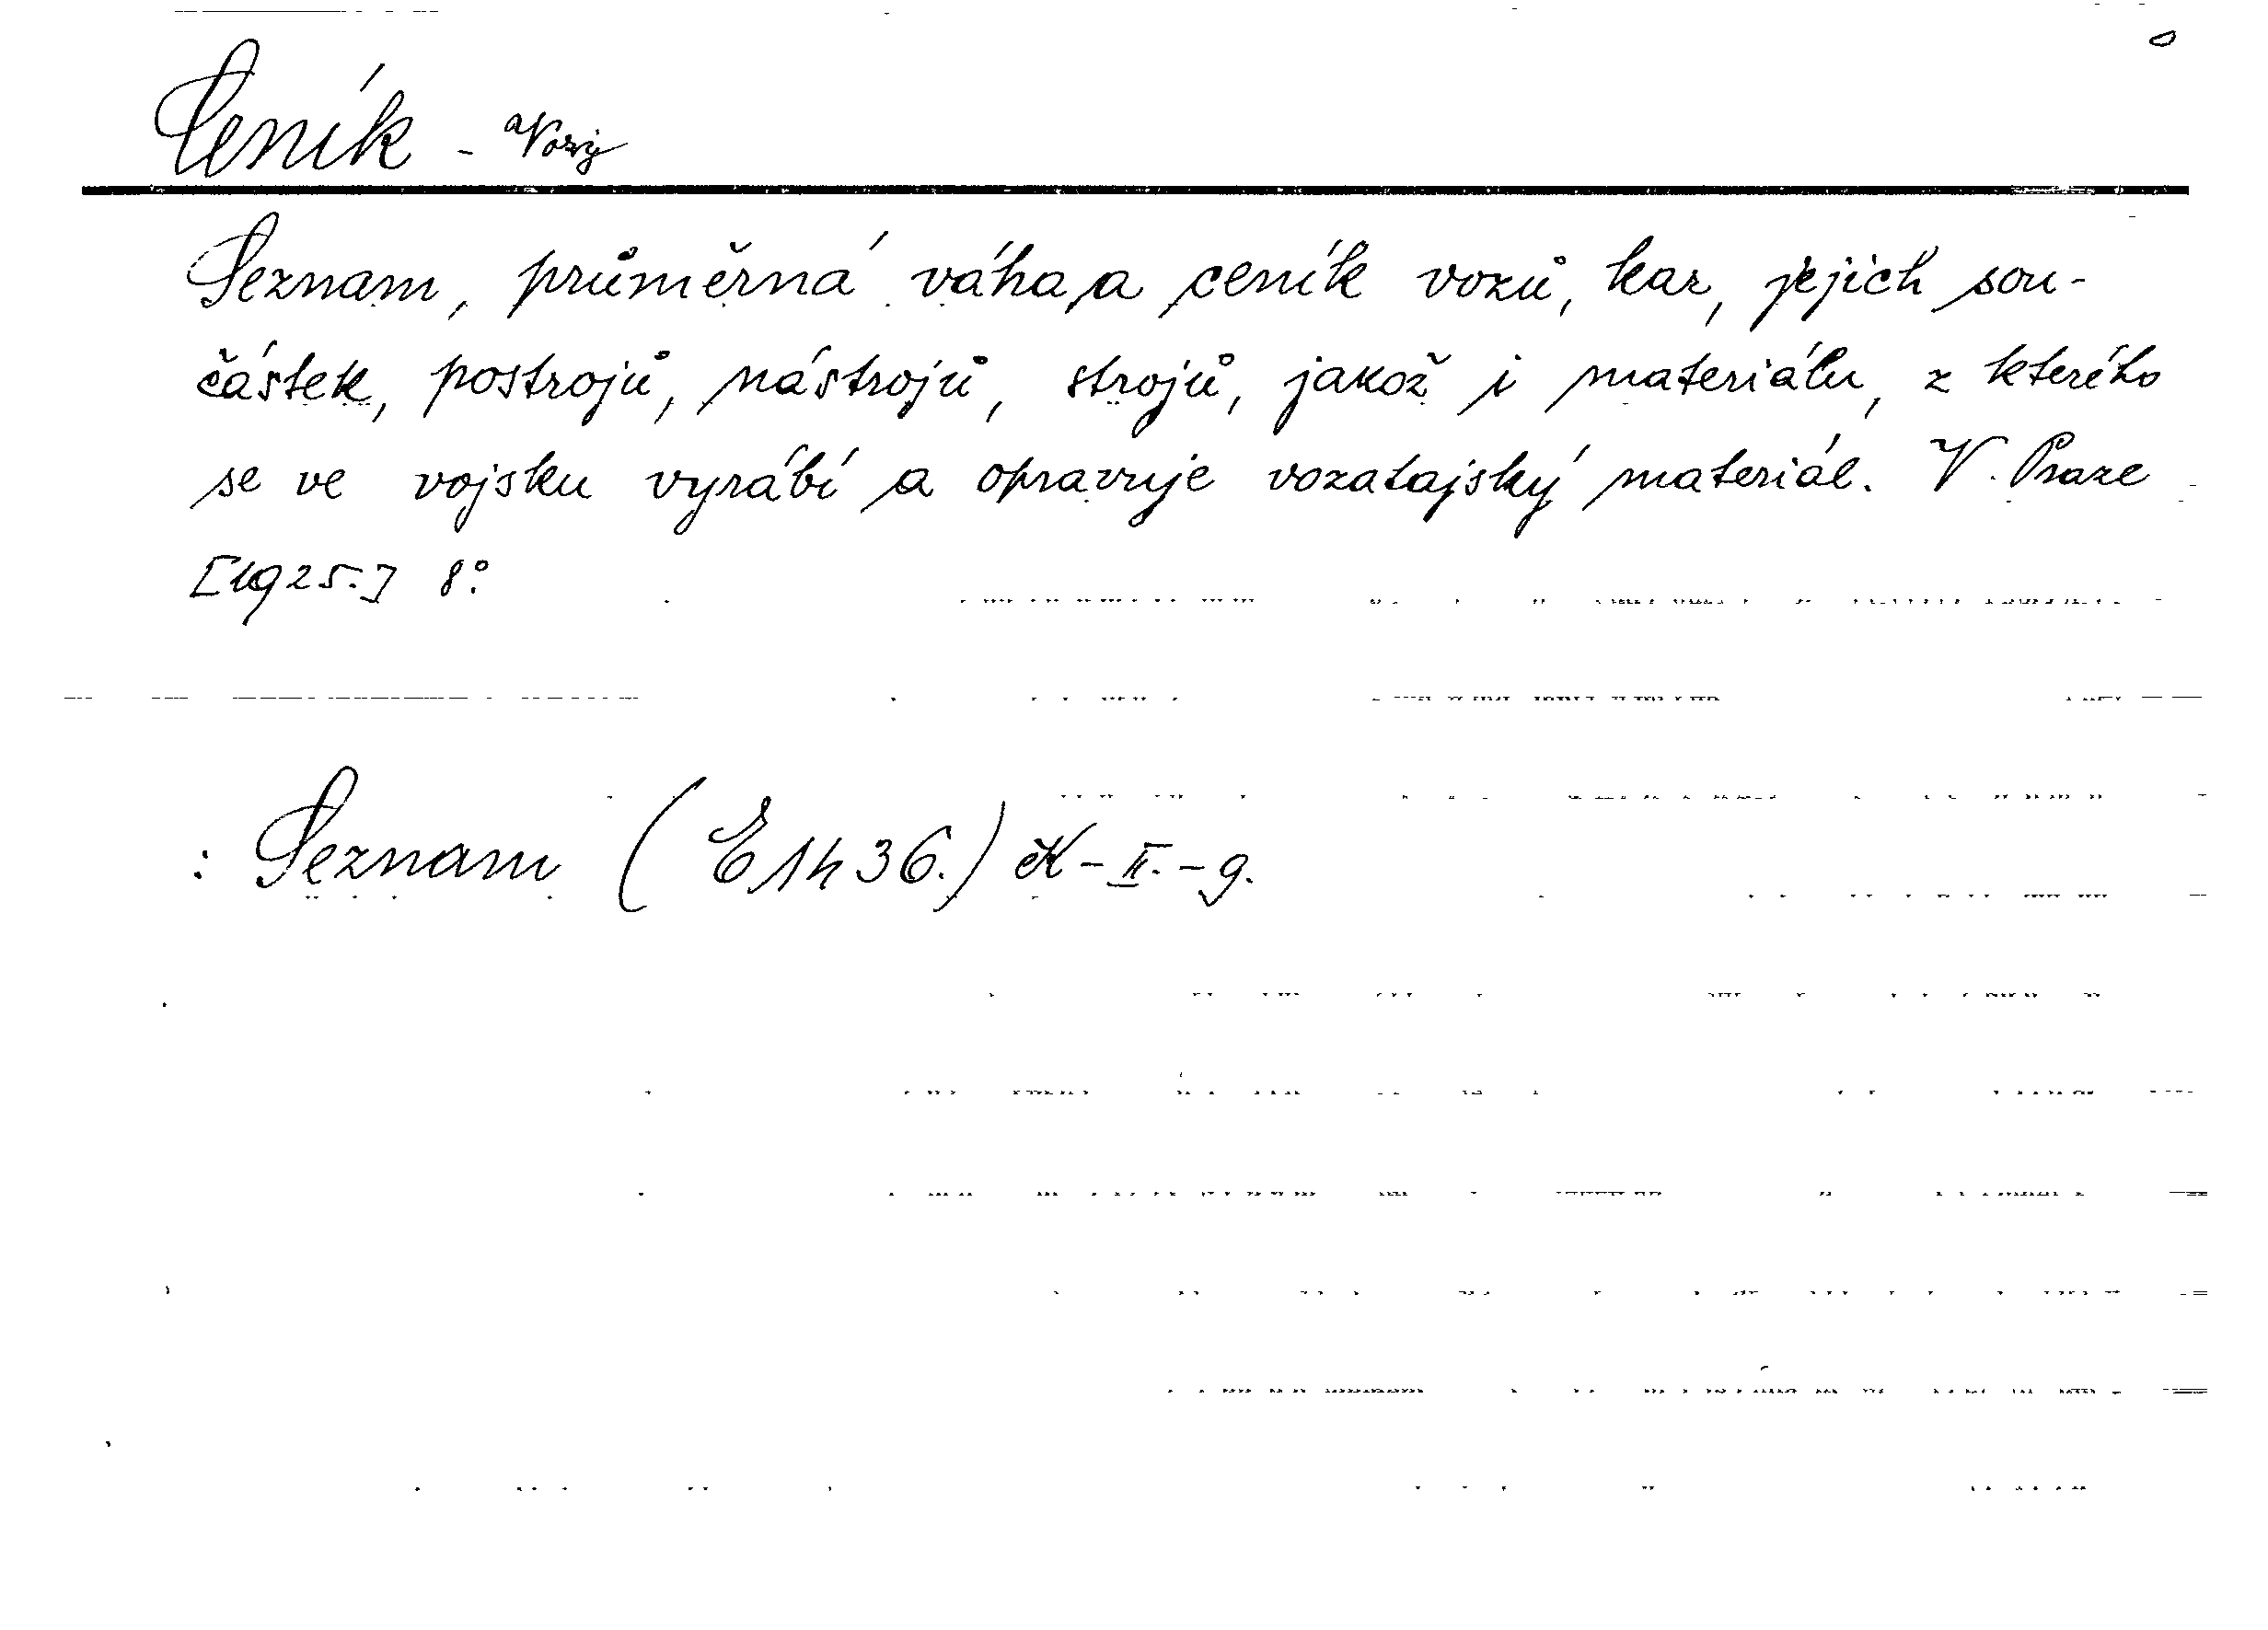 Ceník - Vozy
Seznam, průměrná váha a ceník vozů, kar, jejich sou-
částek, postrojů, nástrojů, strojů, jakož i materiálu, z kterého
se ve vojsku vyrábí a opravuje vozatajský materiál. V Praze
[1925.] 8°.
: Seznam (E 1436.) K-II.-g.